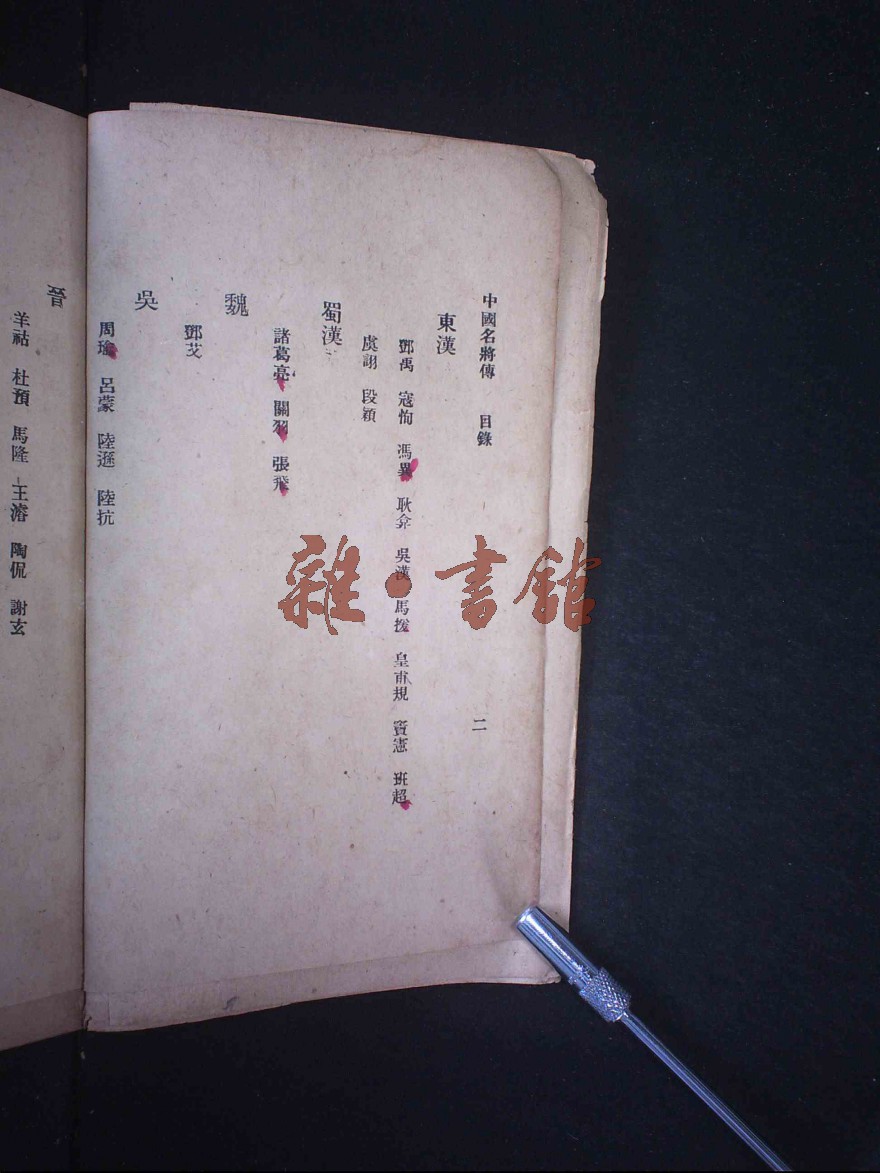 中國名將傳 目錄 二
東漢
鄧禹 寇恂 馮異 耿弇 吳漢 馬援 皇甫規 竇憲 班超
虞詡 段熲
蜀漢
諸葛亮 關羽 張飛
魏
鄧艾
吳
周瑜 呂蒙 陸遜 陸抗
晉
羊祜 杜預 馬隆 王濬 陶侃 謝玄
雜·書館